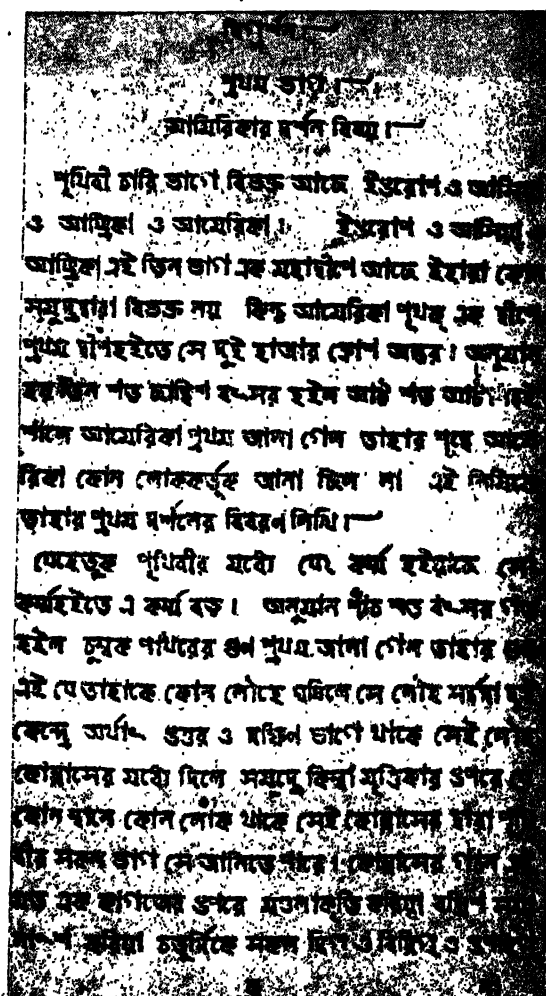 দিগ্দর্শন
প্রথম ভাগ।
আমেরিকার দর্শন বিষয়।
পৃথিবী চারি ভাগে বিভক্ত আছে ইউরোপ ও
ও আফ্রিকা ও আমেরিকা। ইউরোপ ও আসিয়া
আফ্রিকা এই তিন ভাগ এক মহাদ্বীপে আছে ইহারা কোন
সমুদ্রদ্বারা বিভক্ত নয় কিন্তু আমেরিকা পৃথক্ এক দ্বীপে
প্রথম দ্বীপহইতে সে দুই হাজার ক্রোশ অন্তর। অনুমান
হয় তিন শত ছাব্বিশ বৎসর হইল আট শত আটা
শালে আমেরিকা প্রথম জানা গেল তাহার পূর্বে
রিকা কোন লোককর্তৃক জানা ছিল না এই নিমিত্তে
তাহার প্রথম দর্শনের বিবরণ লিখি।
যেহেতুক পৃথিবীর মধ্যে যে২ কর্ম্ম হইয়াছে
কর্ম্মহইতে এ কর্ম্ম বড়। অনুমান পাঁচ শত বৎসর
হইল চুম্বক পাথরের গুণ প্রথম জানা গেল তাহার
এই যে তাহাকে কোন লৌহে ঘষিলে সে লৌহ সর্ব্বদা
কেন্দ্রে অর্থাৎ উত্তর ও দক্ষিণ ভাগে থাকে সেই
কোম্পাসের মধ্যে দিলে সমুদ্রে কিম্বা মৃত্তিকার উপরে
কোন স্থানে কোন লোক থাকে সেই কোম্পাসের দ্বারা
বীর সকল ভাগ সে জানিতে পারে। কোম্পাসের
মত এক কাগজের উপরে মণ্ডলাকৃতি করিয়া
করিয়া চতুর্দ্দিকে সকল দিগ ও বিদিগ ও